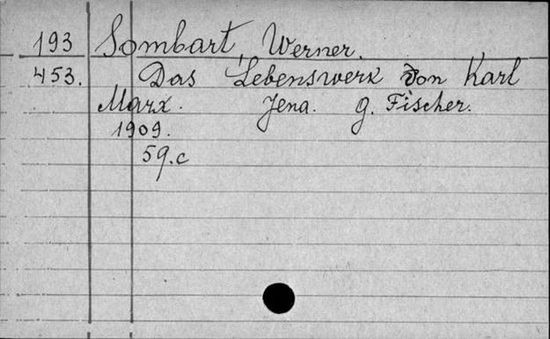 193 Sombart, Werner.
453. Das Lebenswerk von Karl
Marx. Jena. G. Fischer.
1909.
59.c